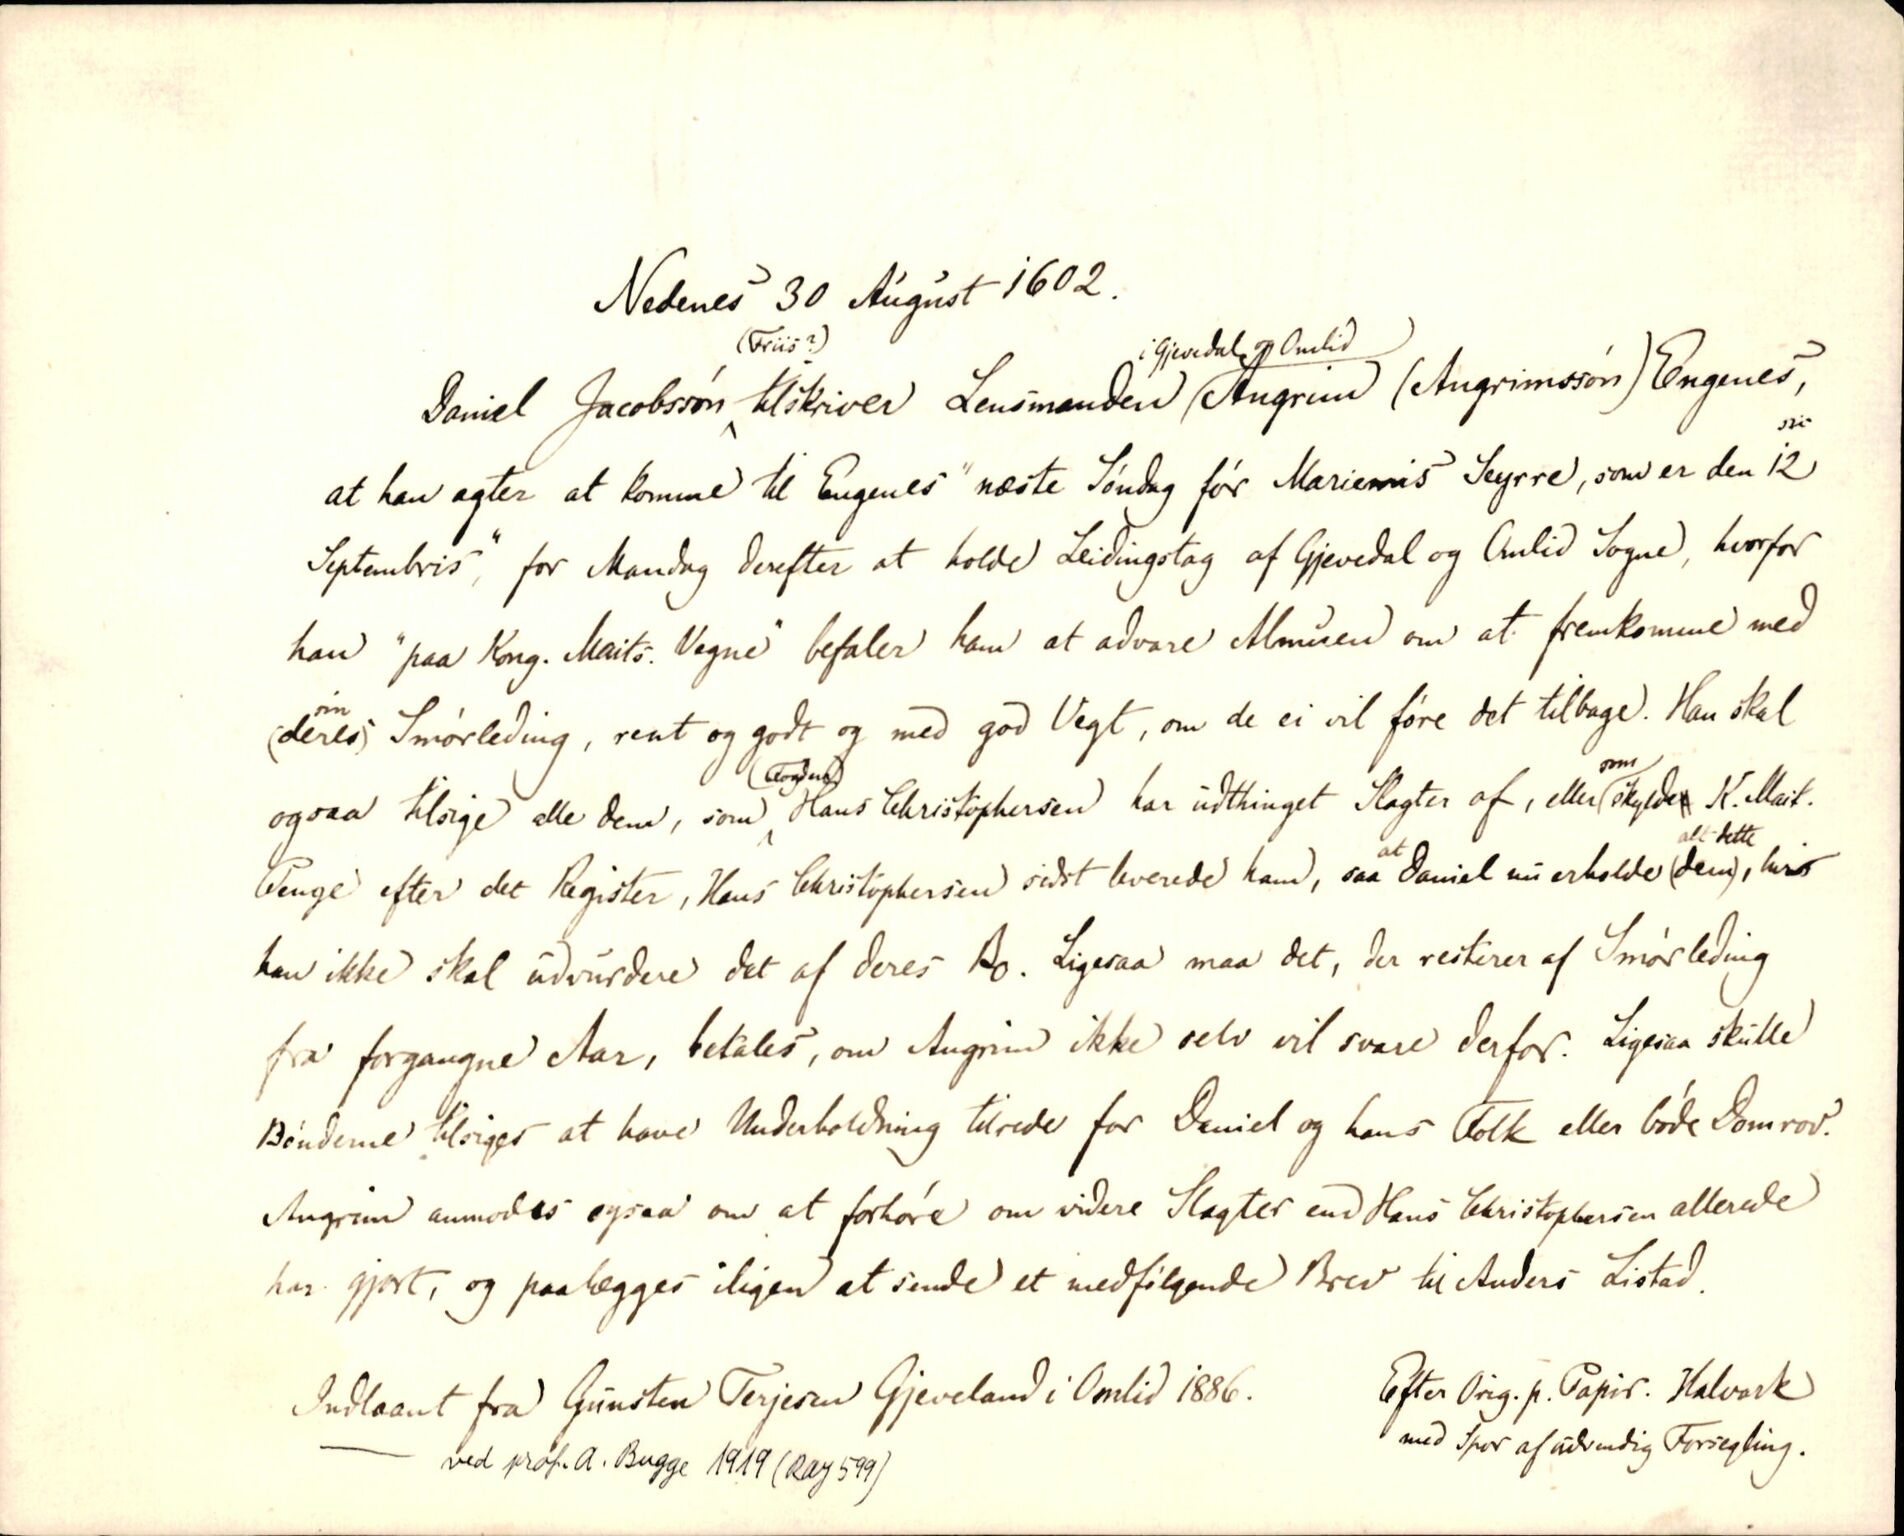 Nedenes 30 August 1602.
(Friis?) i Gjevedal og Omlid
Daniel Jacobssøn tilskriver Lensmanden (Angrim (Angrimssøn) Engenes,
sic
at han agter at komme til Engenes "næste Søndag før Mariemis Seyrre, som er den 12
Septembris", for Mandag derefter at holde Leidingstag af Gjevedal og Omlid Sogne, hvorfor
han "paa Kong. Maits. Vegne" befaler ham at advare Almuen om at fremkomme med
sin
(deres) Smørleding, rent og godt og med god Vegt, om de ei vil føre det tilbage. Han skal
(Fogden) som
ogsaa tilsige alle dem, som Hans Christophersen har udthinget Slagter af, eller (skylder K. Mait.
at alt dette
Penge efter det Register, Hans Christophersen sidst leverede ham, saa Daniel nu erholde (dem), hvis
han ikke skal udvurdere det af deres Bo. Ligesaa maa det, der resterer af Smørleding
fra forgangne Aar, betales, om Angrim ikke selv vil svare derfor. Ligesaa skulle
Bønderne tilsiges at have Underholdning tilrede for Daniel og hans Folk eller bøde Domrov.
Angrim anmodes ogsaa om at forhøre om videre Slagter end Hans Christophersen allerede
har gjort, og paalægges iligen at sende et medfølgende Brev til Anders Listad.
Indlaant fra Gunsten Terjesen Gjeveland i Omlid 1886.
ved prof. A. Bugge 1919 (Ray 599)
Efter Orig. p. Papir. Halvark
med Spor af udvendig Forsegling.